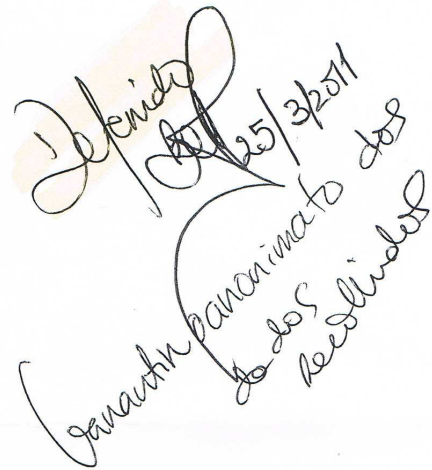 Deferido
25/3/2011
Garantir anonimato dos
dados
recolhidos